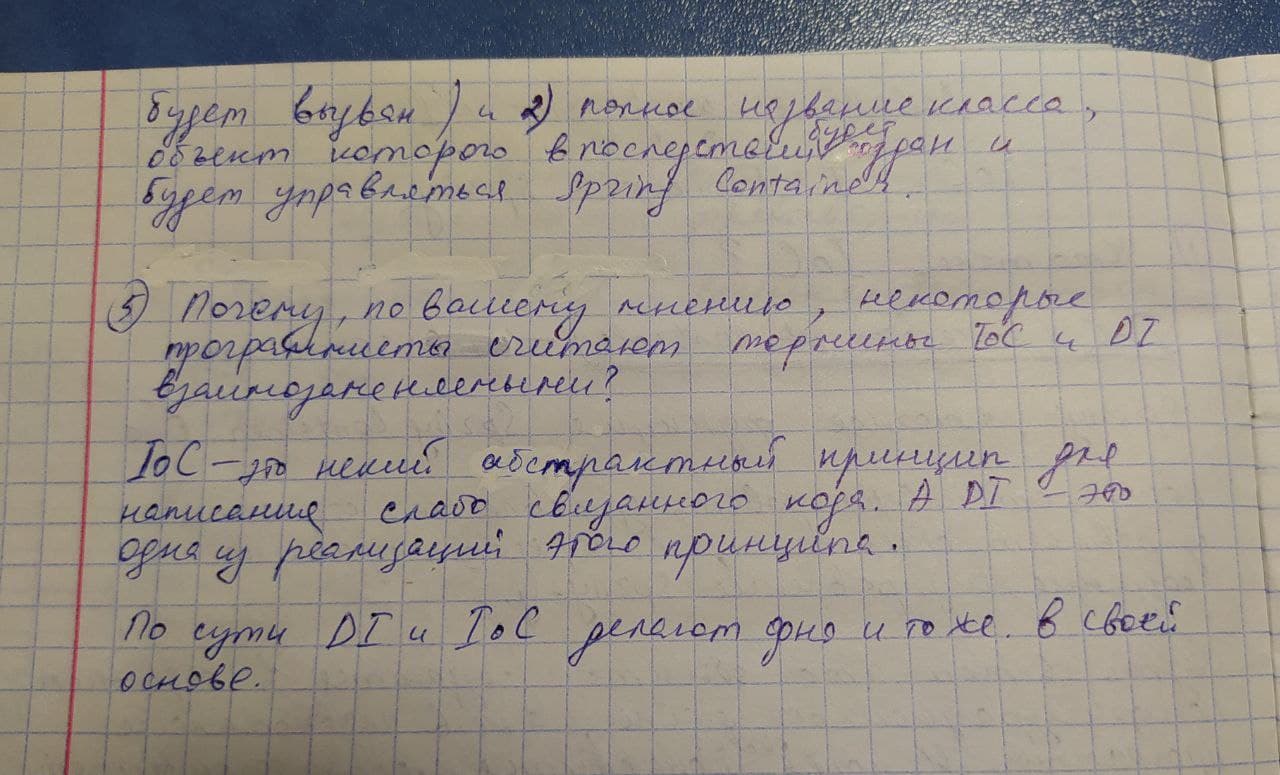 будет вызван) и 2) полное название класса,
объект которого впоследствии будет создан и
будет управляться Spring Container.
5 Почему, по вашему мнению, некоторые
программисты считают термины IoC и DI
взаимозаменяемыми?
IoC – это некий абстрактный принцип для
написания слабо связанного кода. А DI – это
одна из реализаций этого принципа.
По сути DI и IoC делают одно и то же. в своей
основе.